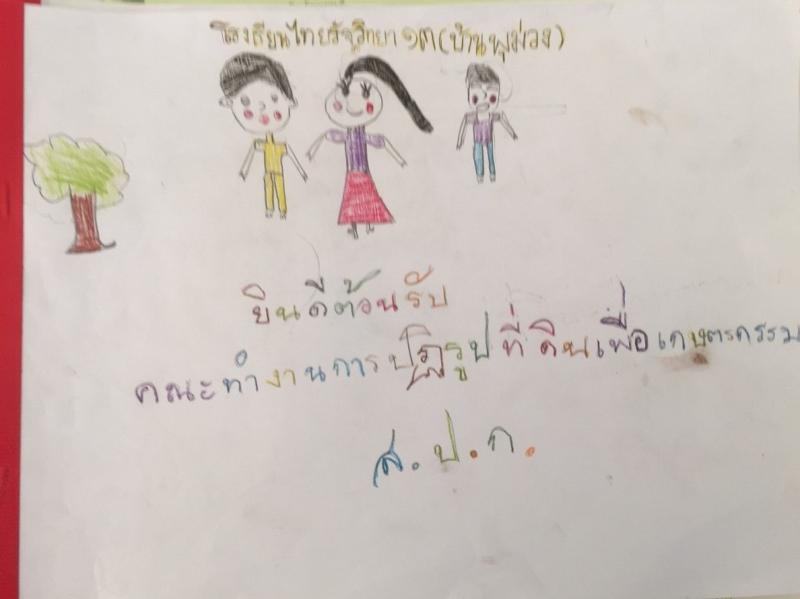 โรงเรียนไทยรัฐวิทยา ๑๓ (บ้านพุม่วง)
ยินดีต้อนรับ
คณะทำงานการปฏิรูปที่ดินเพื่อเกษตรกรรม
ส.ป.ก.